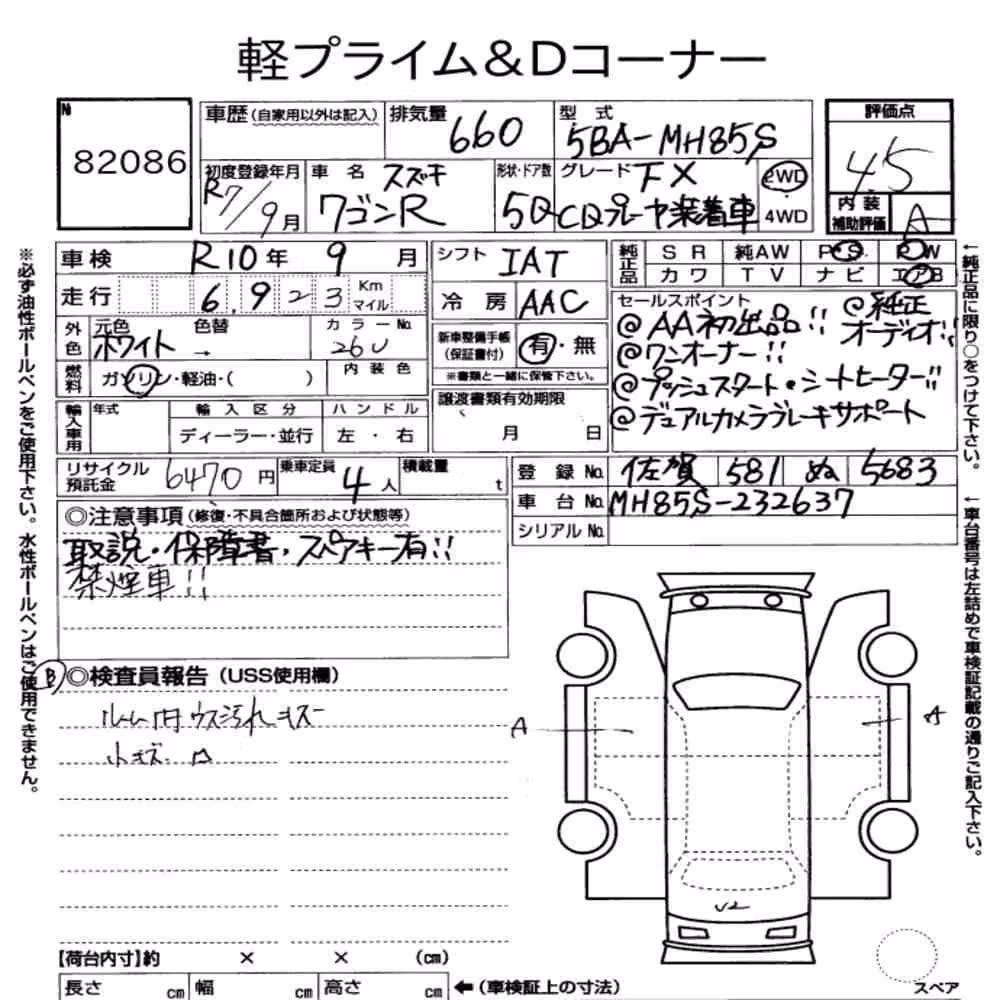 軽プライム&Dコーナー
№
82086
車歴 (自家用以外は記入)
排気量 660
型式 5BA-MH85S
評価点 4.5
初度登録年月 R7/9月
車名 スズキ
ワゴンR
形状・ドア数 5D
グレード FX
CDプレーヤ装着車
2WD
4WD
内装補助評価 A
車検 R10年 9月
走行 6,923 Km マイル
外色 元色 色替
ホワイト →
カラーNo. 26U
燃料 ガソリン・軽油・( )
内装色
輸入車用 年式 輸入区分 ハンドル
ディーラー・並行 左・右
シフト IAT
冷房 AAC
新車整備手帳(保証書付) 有・無
※書類と一緒に保管下さい。
譲渡書類有効期限
月 日
純正品 SR 純AW PS PW
カワ TV ナビ エアB
セールスポイント
@AA初出品!! @純正オーディオ!!
@ワンオーナー!!
@プッシュスタート・シートヒーター!!
@デュアルカメラブレーキサポート
リサイクル預託金 6470円
乗車定員 4人
積載量 t
登録No. 佐賀 581 ぬ 5683
車台No. MH85S-232637
シリアルNo.
◎注意事項(修復・不具合箇所および状態等)
取説・保障書・スペアキー有!!
禁煙車!!
B
◎検査員報告(USS使用欄)
ルーム内ウス汚れキズ
小キズ
A
A
U2
【荷台内寸】約 × × (cm)
長さ cm 幅 cm 高さ cm ←(車検証上の寸法)
スペア
※必ず油性ボールペンをご使用下さい。水性ボールペンはご使用できません。
←純正品に限り○をつけて下さい。
←車台番号は左詰めで車検証記載の通りご記入下さい。